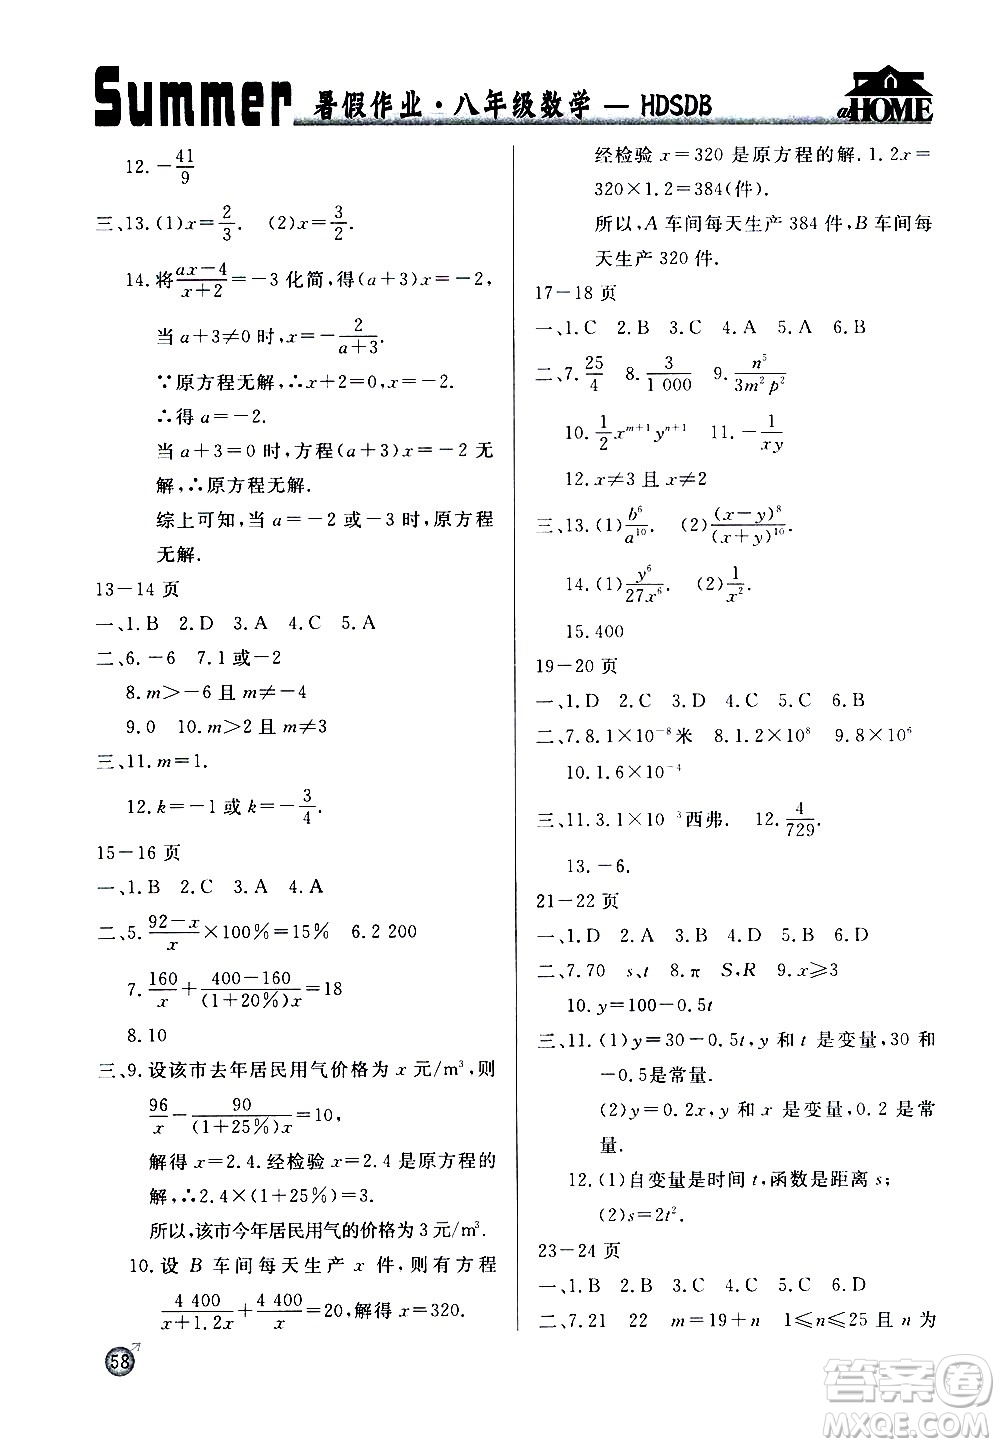 Summer 暑假作业·八年级数学 — HDSDB
at HOME
12. -41/9
三、13. (1)x=2/3. (2)x=3/2.
14. 将(ax-4)/(x+2)=-3 化简,得(a+3)x=-2,
当 a+3≠0 时,x=-2/(a+3).
∵原方程无解,∴x+2=0,x=-2.
∴得 a=-2.
当 a+3=0 时,方程(a+3)x=-2 无
解,∴原方程无解.
综上可知,当 a=-2 或-3 时,原方程
无解.
13-14 页
一、1. B 2. D 3. A 4. C 5. A
二、6. -6 7. 1 或-2
8. m>-6 且 m≠-4
9. 0 10. m>2 且 m≠3
三、11. m=1.
12. k=-1 或 k=-3/4.
15-16 页
一、1. B 2. C 3. A 4. A
二、5. (92-x)/x×100%=15% 6. 2 200
7. 160/x+(400-160)/((1+20%)x)=18
8. 10
三、9. 设该市去年居民用气价格为 x 元/m³,则
96/x-90/((1+25%)x)=10,
解得 x=2.4. 经检验 x=2.4 是原方程的
解,∴2.4×(1+25%)=3.
所以,该市今年居民用气的价格为 3 元/m³.
10. 设 B 车间每天生产 x 件,则有方程
4 400/(x+1.2x)+4 400/2x=20,解得 x=320.
58
经检验 x=320 是原方程的解. 1.2x=
320×1.2=384(件).
所以,A 车间每天生产 384 件,B 车间每
天生产 320 件.
17-18 页
一、1. C 2. B 3. C 4. A 5. A 6. B
二、7. 25/4 8. 3/1 000 9. n⁵/3m²p²
10. 1/2 xᵐ⁺¹yⁿ⁺¹ 11. -1/xy
12. x≠3 且 x≠2
三、13. (1)b⁶/a¹⁰. (2)(x-y)⁸/(x+y)¹⁰.
14. (1)y⁶/27x⁶. (2)1/x².
15. 400
19-20 页
一、1. D 2. C 3. D 4. A 5. C 6. B
二、7. 8.1×10⁻⁸米 8. 1.2×10⁸ 9. 8×10⁶
10. 1.6×10⁻⁴
三、11. 3.1×10⁻³西弗. 12. 4/729.
13. -6.
21-22 页
一、1. D 2. D 3. C 4. A 5. B 6. D
二、7. 70 s、t 8. π S、R 9. x≥3
10. y=100-0.5t
三、11. (1)y=30-0.5t,y 和 t 是变量,30 和
-0.5是常量.
(2)y=0.2x,y 和 x 是变量,0.2 是常
量.
12. (1)自变量是时间 t,函数是距离 s;
(2)s=2t².
23-24 页
一、1. B 2. B 3. C 4. A 5. C 6. D
二、7. 21 22 m=19+n 1≤n≤25 且 n 为
答案圈
MXQE.COM